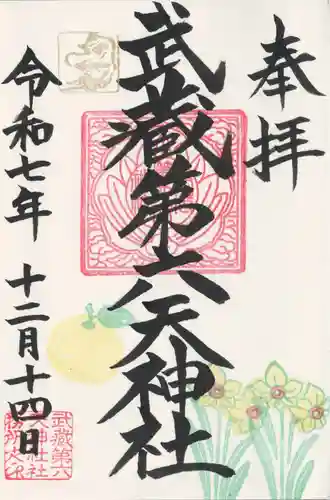 奉拝
武蔵第六天神社
令和七年 十二月十四日
武蔵第六
天神社社
務所之印